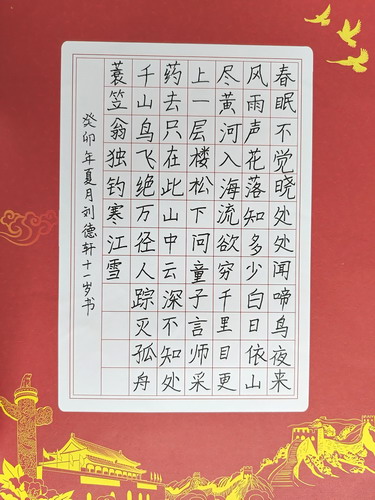 春眠不觉晓处处闻啼鸟夜来
风雨声花落知多少白日依山
尽黄河入海流欲穷千里目更
上一层楼松下问童子言师采
药去只在此山中云深不知处
千山鸟飞绝万径人踪灭孤舟
蓑笠翁独钓寒江雪
癸卯年夏月刘德轩十一岁书